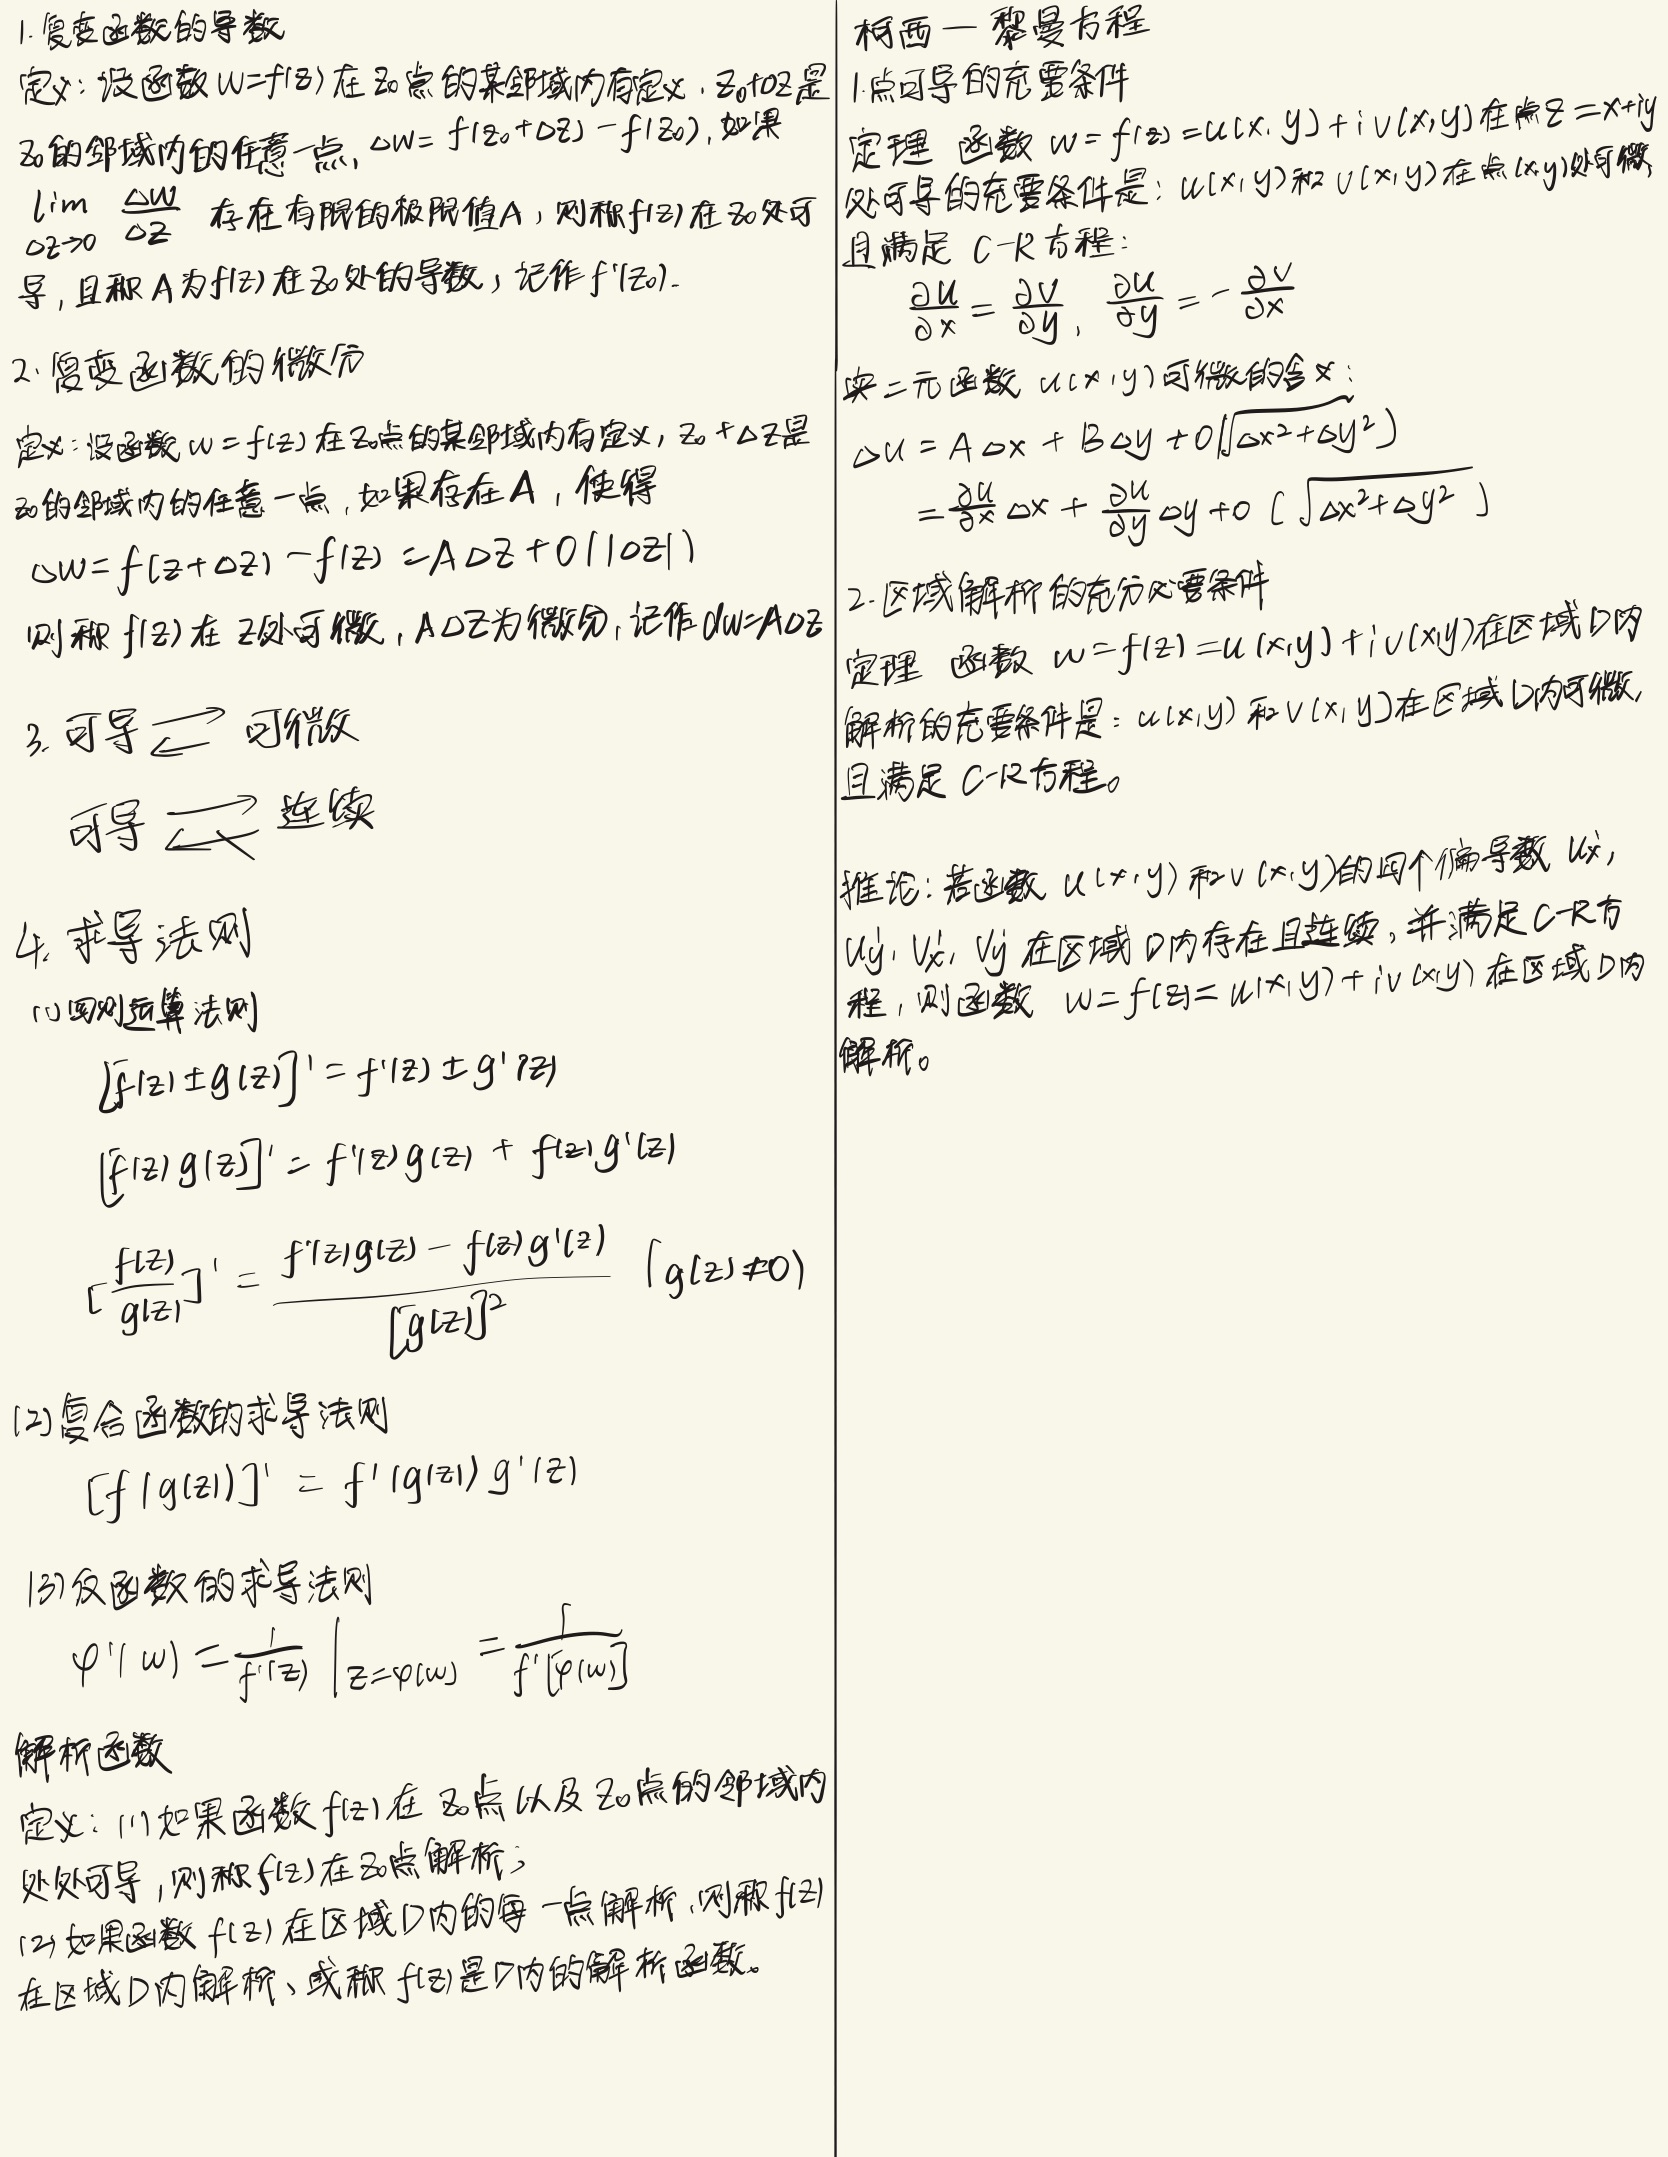 1.复变函数的导数
定义:设函数 w=f(z) 在 z₀ 点的某邻域内有定义,z₀+Δz 是
z₀的邻域内的任意一点, Δw= f(z₀+Δz)-f(z₀),如果
lim Δz→0 Δw/Δz 存在有限的极限值A,则称f(z)在z₀处可
导,且称A为f(z)在z₀处的导数,记作f'(z₀).
2.复变函数的微分
定义:设函数 w=f(z) 在z₀点的某邻域内有定义,z₀+Δz是
z₀的邻域内的任意一点,如果存在A,使得
Δw=f(z+Δz)-f(z)=AΔz+0(|Δz|)
则称 f(z)在 z处可微,AΔz为微分,记作dw=AΔz
3.可导 ⇄ 可微
可导 ⇄ 连续
4.求导法则
(1)四则运算法则
[f(z)±g(z)]'=f'(z)±g'(z)
[f(z)g(z)]'=f'(z)g(z)+f(z)g'(z)
[f(z)/g(z)]' = f'(z)g(z)-f(z)g'(z) / [g(z)]² (g(z)≠0)
(2)复合函数的求导法则
[f(g(z))]' = f'(g(z))g'(z)
(3)反函数的求导法则
φ'(w)=1/f'(z) |z=φ(w) =1/f'[φ(w)]
解析函数
定义:(1)如果函数f(z)在 z₀点以及z₀点的邻域内
处处可导,则称f(z)在z₀点解析;
(2)如果函数 f(z)在区域D内的每一点解析,则称f(z)
在区域D内解析、或称f(z)是D内的解析函数。
柯西一黎曼方程
1.点可导的充要条件
定理 函数 w=f(z)=u(x,y)+iv(x,y)在点z=x+iy
处可导的充要条件是:u(x,y)和v(x,y)在点(x,y)处可微,
且满足 C-R方程:
∂u/∂x = ∂v/∂y, ∂u/∂y = -∂v/∂x
实二元函数 u(x,y)可微的含义:
Δu=AΔx+BΔy+0(√Δx²+Δy²)
=∂u/∂x Δx+∂u/∂y Δy+0(√Δx²+Δy²)
2.区域解析的充分必要条件
定理 函数 w=f(z)=u(x,y)+iv(x,y)在区域D内
解析的充要条件是:u(x,y)和v(x,y)在区域D内可微,
且满足 C-R方程。
推论:若函数 u(x,y)和v(x,y)的四个偏导数 ux',
uy', vx', vy' 在区域D内存在且连续,并满足C-R方
程,则函数 w=f(z)=u(x,y)+iv(x,y)在区域D内
解析。